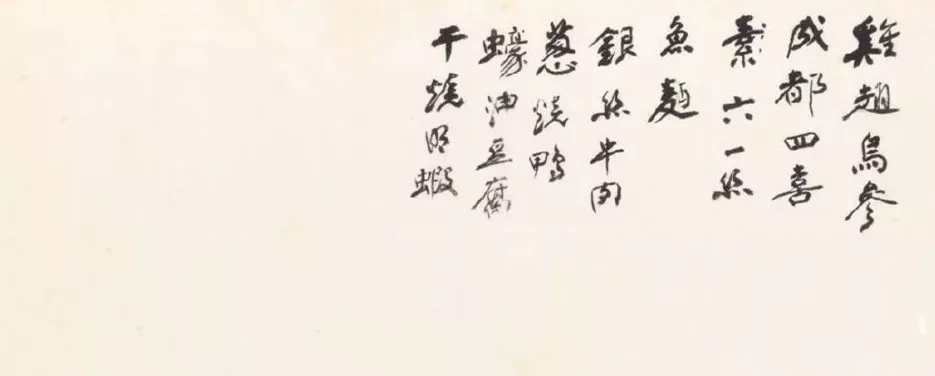 雞趐烏參
成都四喜
素六一絲
魚麵
銀絲牛肉
葱燒鴨
蠔油豆腐
干燒明蝦